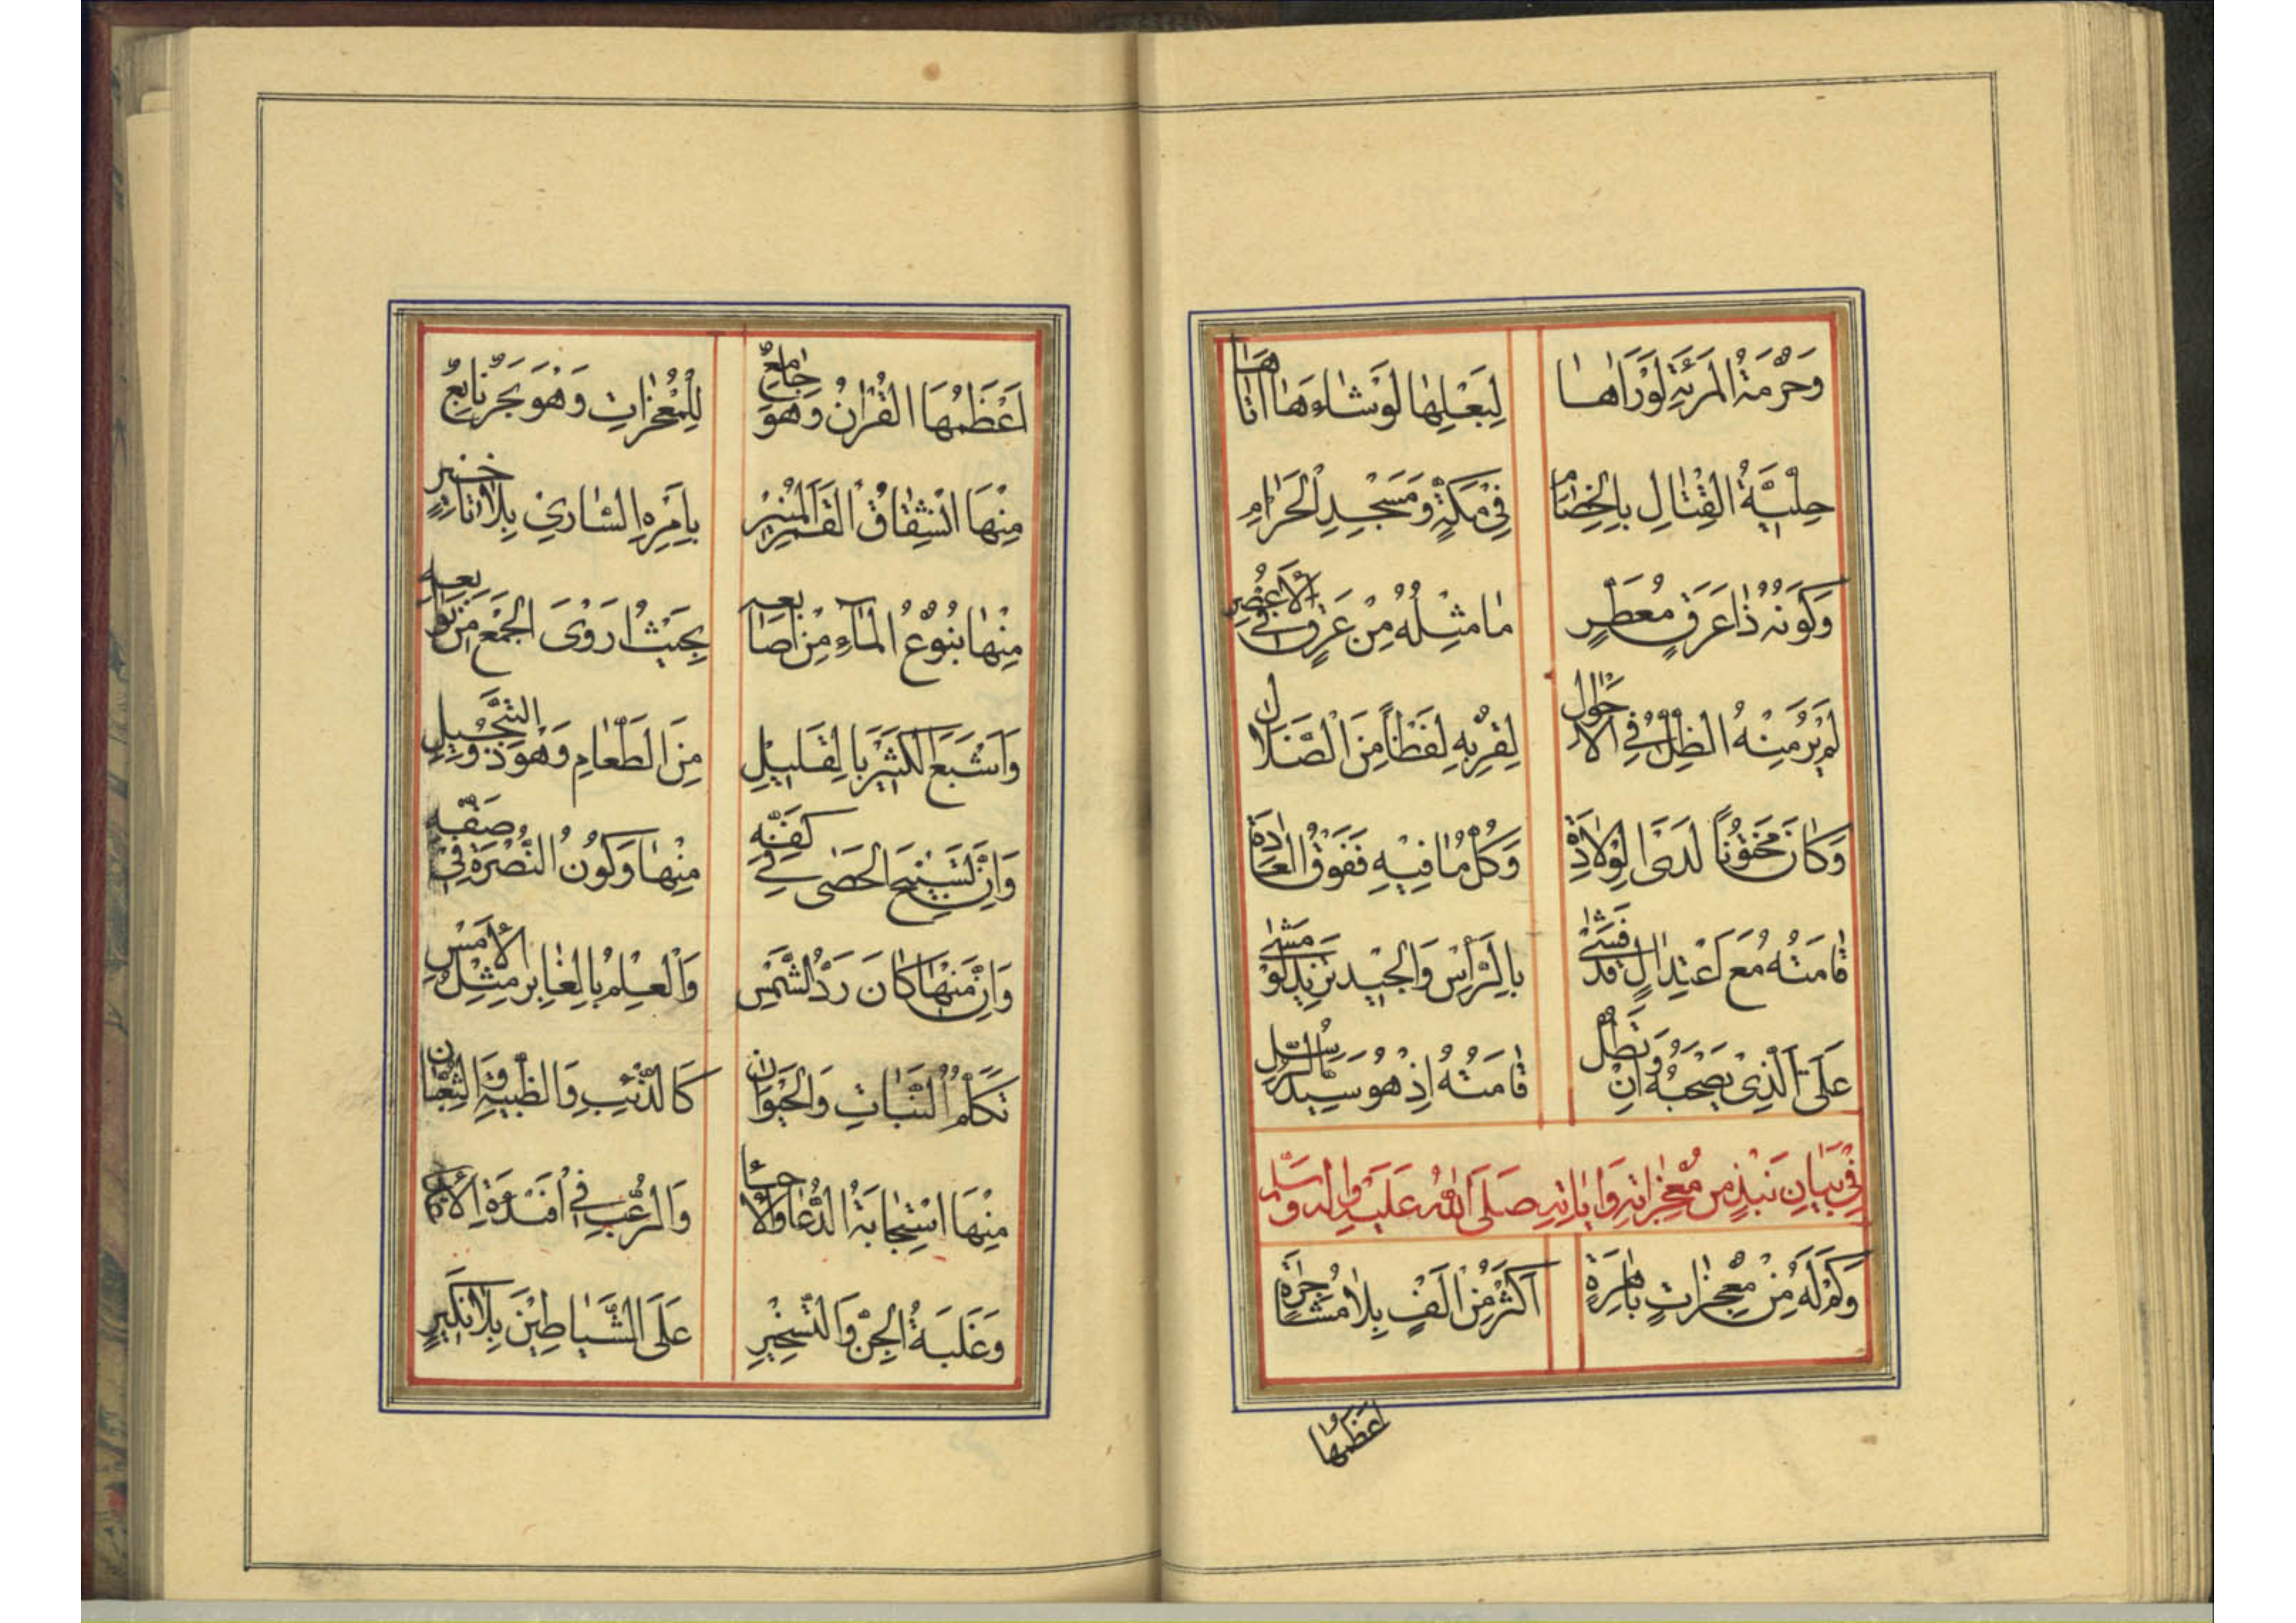 وَحُرْمَةُ المَرْئَةِ لَوْ رَاٰهَا لِبَعْلِهَا لَوْ شَاءَ هَا اَتَاهَا
حِلِّيَّةُ القِتَالِ بِالخِصَامِ فِي مَكَّةٍ وَ مَسْجِدِ الحَرَامِ
وَكَوْنُهُ ذَا عَرَقٍ مُعَطَّرٍ مَا مِثْلُهُ مِنْ عَرَقٍ فِي الْاَعْصُرِ
لَمْ يُرَ مِنْهُ الظِّلُّ فِي الْاَحْوَالِ لِقُرْبِهِ لَفْظًا مِنَ الضَّلَالِ
وَكَانَ مَخْتُونًا لَدَى الوِلَادَةِ وَكُلُّ مَا فِيهِ فَفَوْقَ العَادَةِ
قَامَتُهُ مَعَ اعْتِدَالٍ قَدْ فَشَى بِالرَّأْسِ وَالجِيدِ يَزِيدُ لَوْ مَشَى
عَلَى الَّذِي يَصْحَبُهُ وَاِنْ تَطُلْ قَامَتُهُ اِذْ هُوَ سَيِّدُ الرُّسُلِ
فِي بَيَانِ نَبْذٍ مِنْ مُعْجِزَاتِهِ وَ اٰيَاتِهِ صَلَّى اللهُ عَلَيْهِ وَاٰلِهِ وَسَلَّمَ
وَكَمْ لَهُ مِنْ مُعْجِزَاتٍ بَاهِرَةٍ اَكْثَرُ مِنْ اَلْفٍ بِلَا مُشَاجَرَةٍ
اَعْظَمُهَا
اَعْظَمُهَا القُرْاٰنُ وَهُوَ جَامِعٌ لِلْمُعْجِزَاتِ وَهُوَ بَحْرٌ نَابِعٌ
مِنْهَا انْشِقَاقُ القَمَرِ المُنِيْرِ بِاَمْرِهِ السَّارِي بِلَا تَاخِيْرٍ
مِنْهَا نُبُوْعُ المَاءِ مِنْ اَصَابِعِهِ بِحَيْثُ اَرْوَى الجَمْعَ مِنْ تَوَابِعِهِ
وَاَشْبَعَ الكَثِيْرَ بِالقَلِيْلِ مِنَ الطَّعَامِ وَهُوَ ذُو التَّبْجِيْلِ
وَاِنَّ تَسْبِيْحَ الحَصَى فِي كَفِّهِ مِنْهَا وَكَوْنُ النُّصْرَةِ فِي صَفِّهِ
وَاِنَّ مِنْهَا كَانَ رَدُّ الشَّمْسِ وَالْعِلْمُ بِالغَابِرِ مِثْلُ الْاَمْسِ
تَكَلُّمُ النَّبَاتِ وَالحَيَوَانِ كَالذِّئْبِ وَالظَّبْيَةِ وَالثُّعْبَانِ
مِنْهَا اسْتِجَابَةُ الدُّعَا وَالرُّعْبِ فِي اَفْئِدَةِ
وَغَلَبَةُ الجِنِّ وَالتَّسْخِيْرِ عَلَى الشَّيَاطِيْنَ بِلَا نَكِيْرٍ